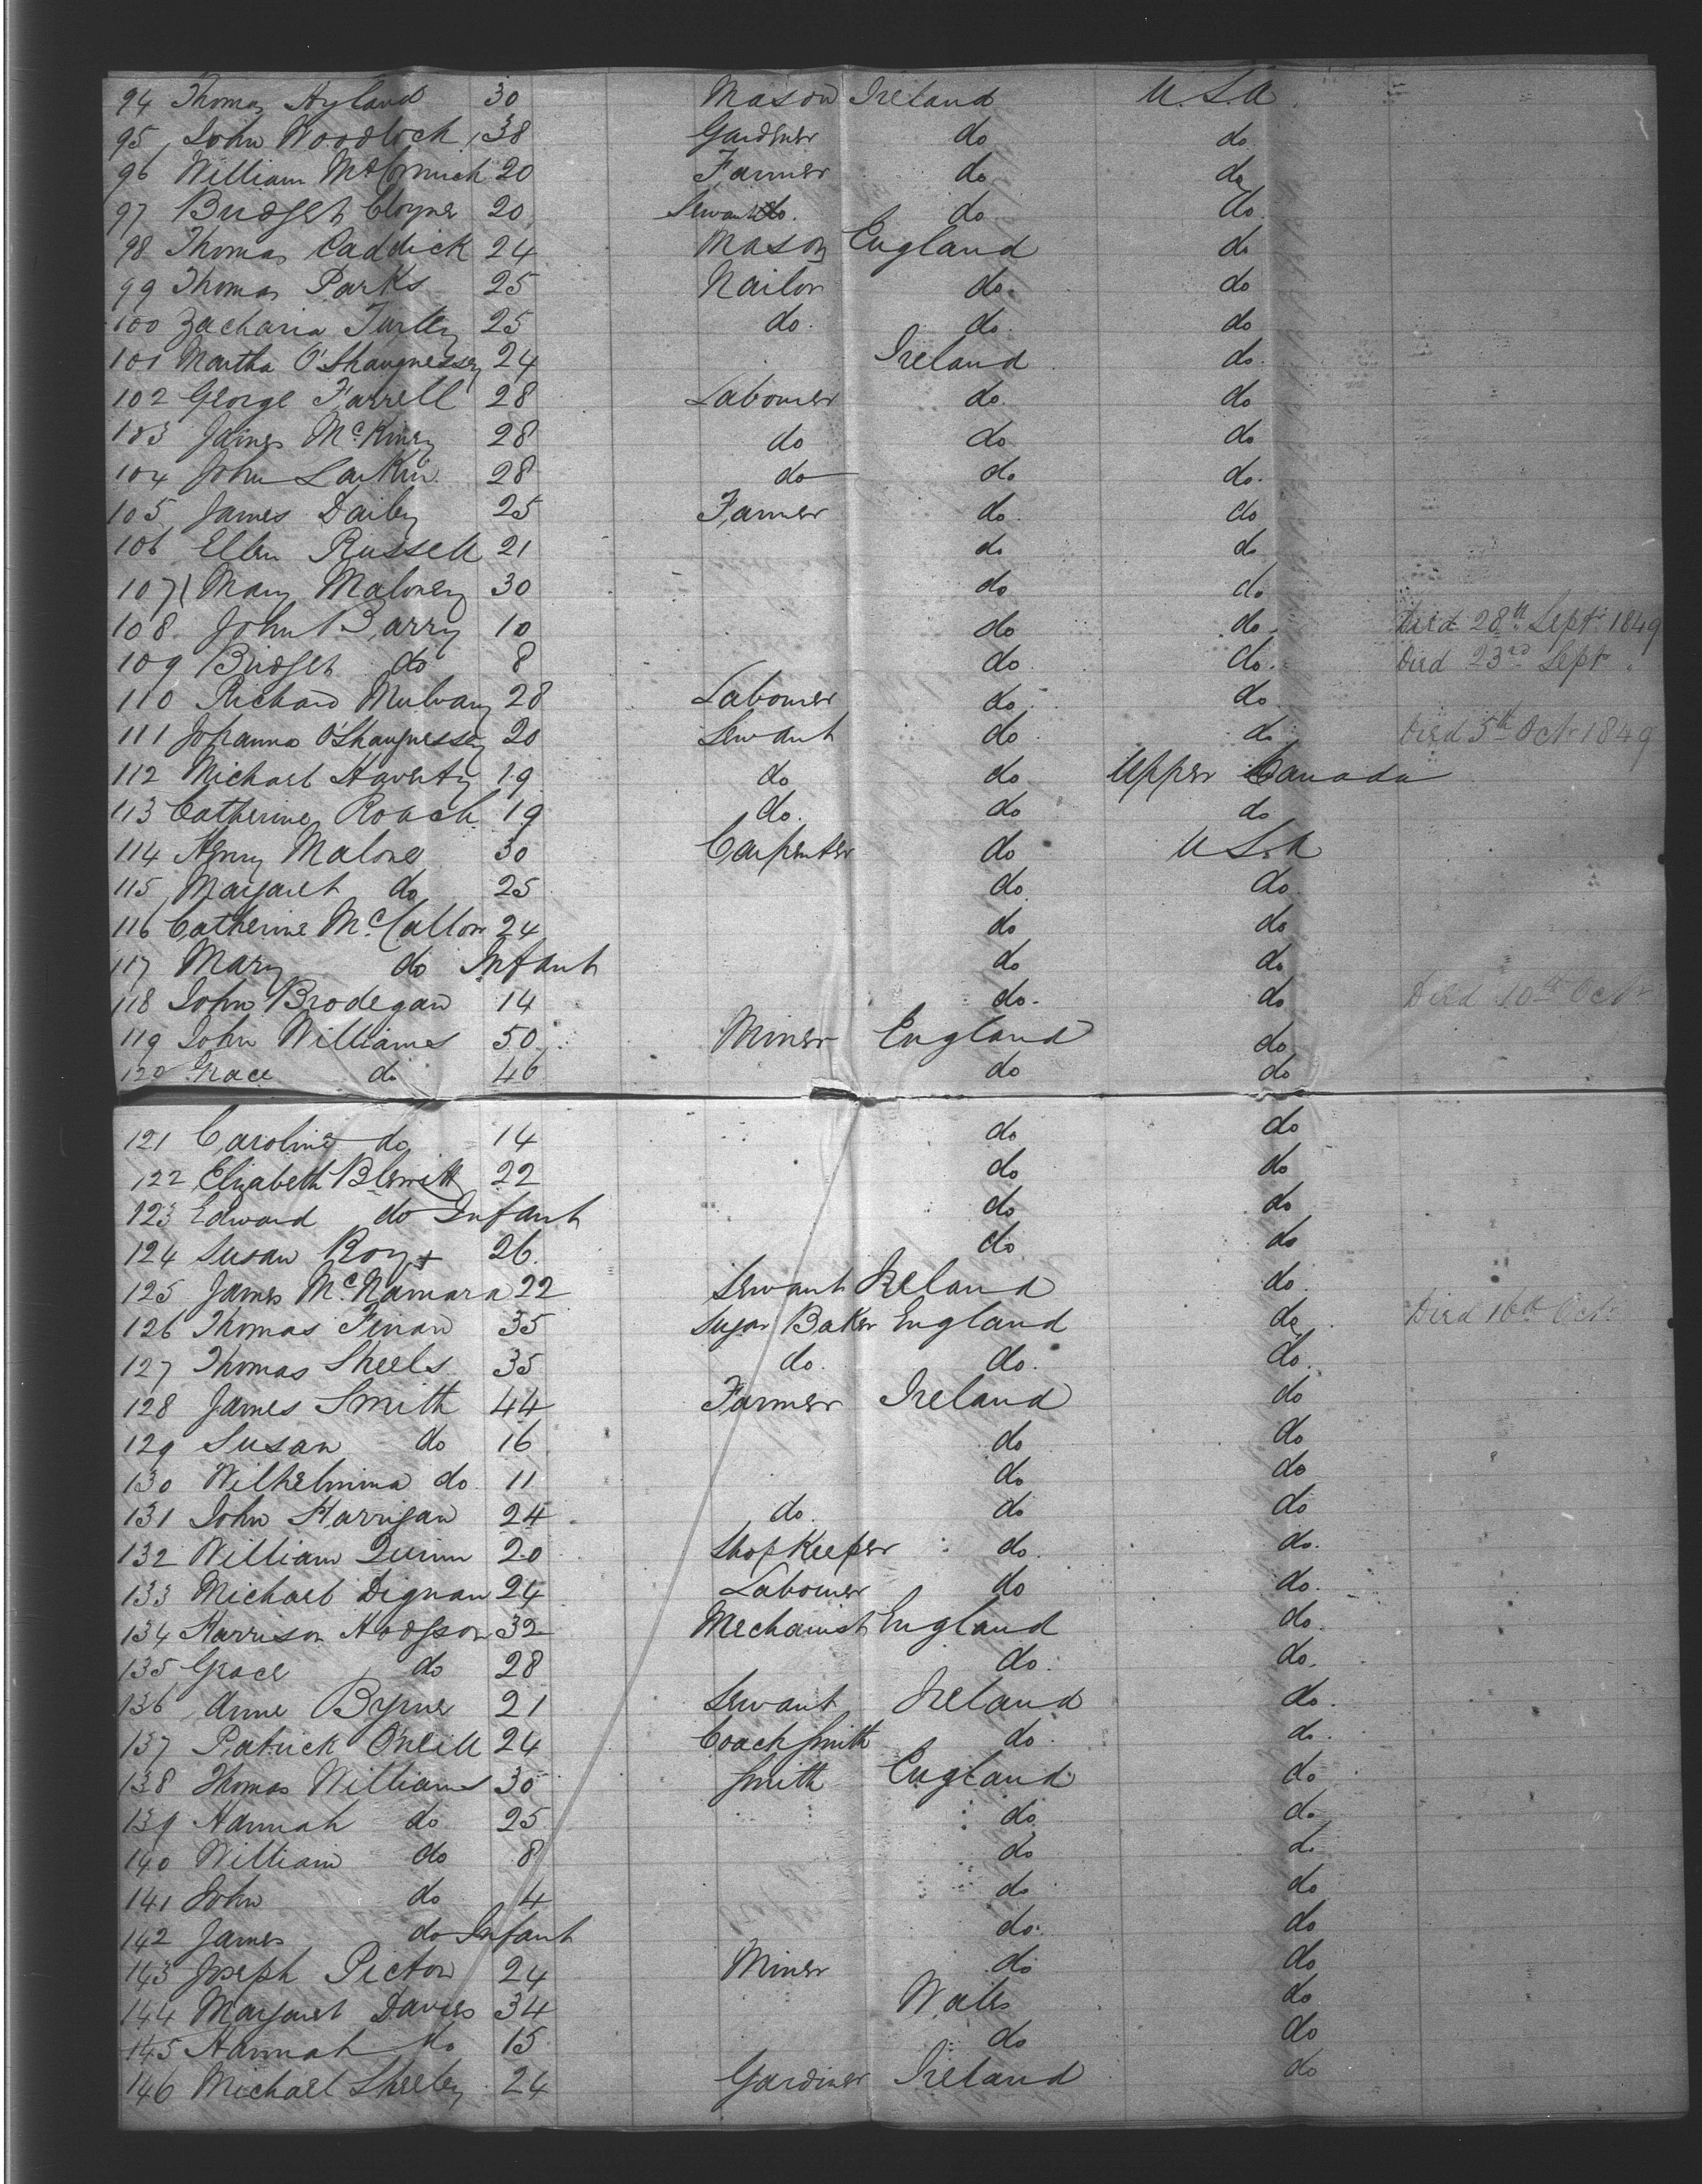 94 Thomas Hyland 30 Mason Ireland U.S.A
95 John Woodlock 38 Gardner do do
96 William McCormick 20 Farmer do do
97 Bridget Cloyne 20 Servant do. do. do.
98 Thomas Caddick 24 Mason England do
99 Thomas Parks 25 Nailor do. do
100 Zacharia Turley 25 do. do. do
101 Martha O'Shaugnessey 24 Ireland do.
102 George Farrell 28 Labourer do. do
103 James McKiney 28 do do do
104 John Larkin 28 do do do.
105 James Dailey 25 Farmer do. do
106 Ellen Russell 21 do do
107 Mary Maloney 30 do do
108 John Barry 10 do do. Died 28th Sept. 1849
109 Bridget do 8 do do. Died 23rd Sept "
110 Richard Mulvany 28 Labourer do do
111 Johanna O'Shaugnessey 20 Servant do. do Died 5th Oct. 1849
112 Michael Haverty 19 do do Upper Canada
113 Catherine Roach 19 do. do do
114 Henry Malone 30 Carpenter do U S.A
115 Margaret do 25 do do.
116 Catherine McCallon 24 do do
117 Mary do Infant do do
118 John Brodegan 14 do. do Died 10th Oct
119 John Williams 50 Miner England do
120 Grace do 46 do do
121 Caroline do 14 do do
122 Elizabeth Blewitt 22 do do
123 Edward do Infant do do
124 Susan Roy 26 do do
125 James McNamara 22 Servant Ireland do.
126 Thomas Finan 35 Sugar Baker England do Died 16th Oct
127 Thomas Sheels 35 do. do. do.
128 James Smith 44 Farmer Ireland do
129 Susan do 16 do do
130 Wilhelmina do. 11 do do
131 John Harrigan 24 do. do do
132 William Quinn 20 Shop Keeper do. do.
133 Michael Dignan 24 Labourer do do.
134 Harrison Hodgson 32 Mechanist England do.
135 Grace do 28 do. do.
136 Anne Byrne 21 Servant Ireland do.
137 Patrick O'Neill 24 Coach Smith do. do.
138 Thomas Williams 30 Smith England do
139 Hannah do 25 do. do
140 William do 8 do do
141 John do 4 do do
142 James do Infant do. do
143 Joseph Picton 24 Miner do do
144 Margaret Davies 34 Wales do
145 Hannah do 15 do do
146 Michael Sheeley 24 Gardiner Ireland do